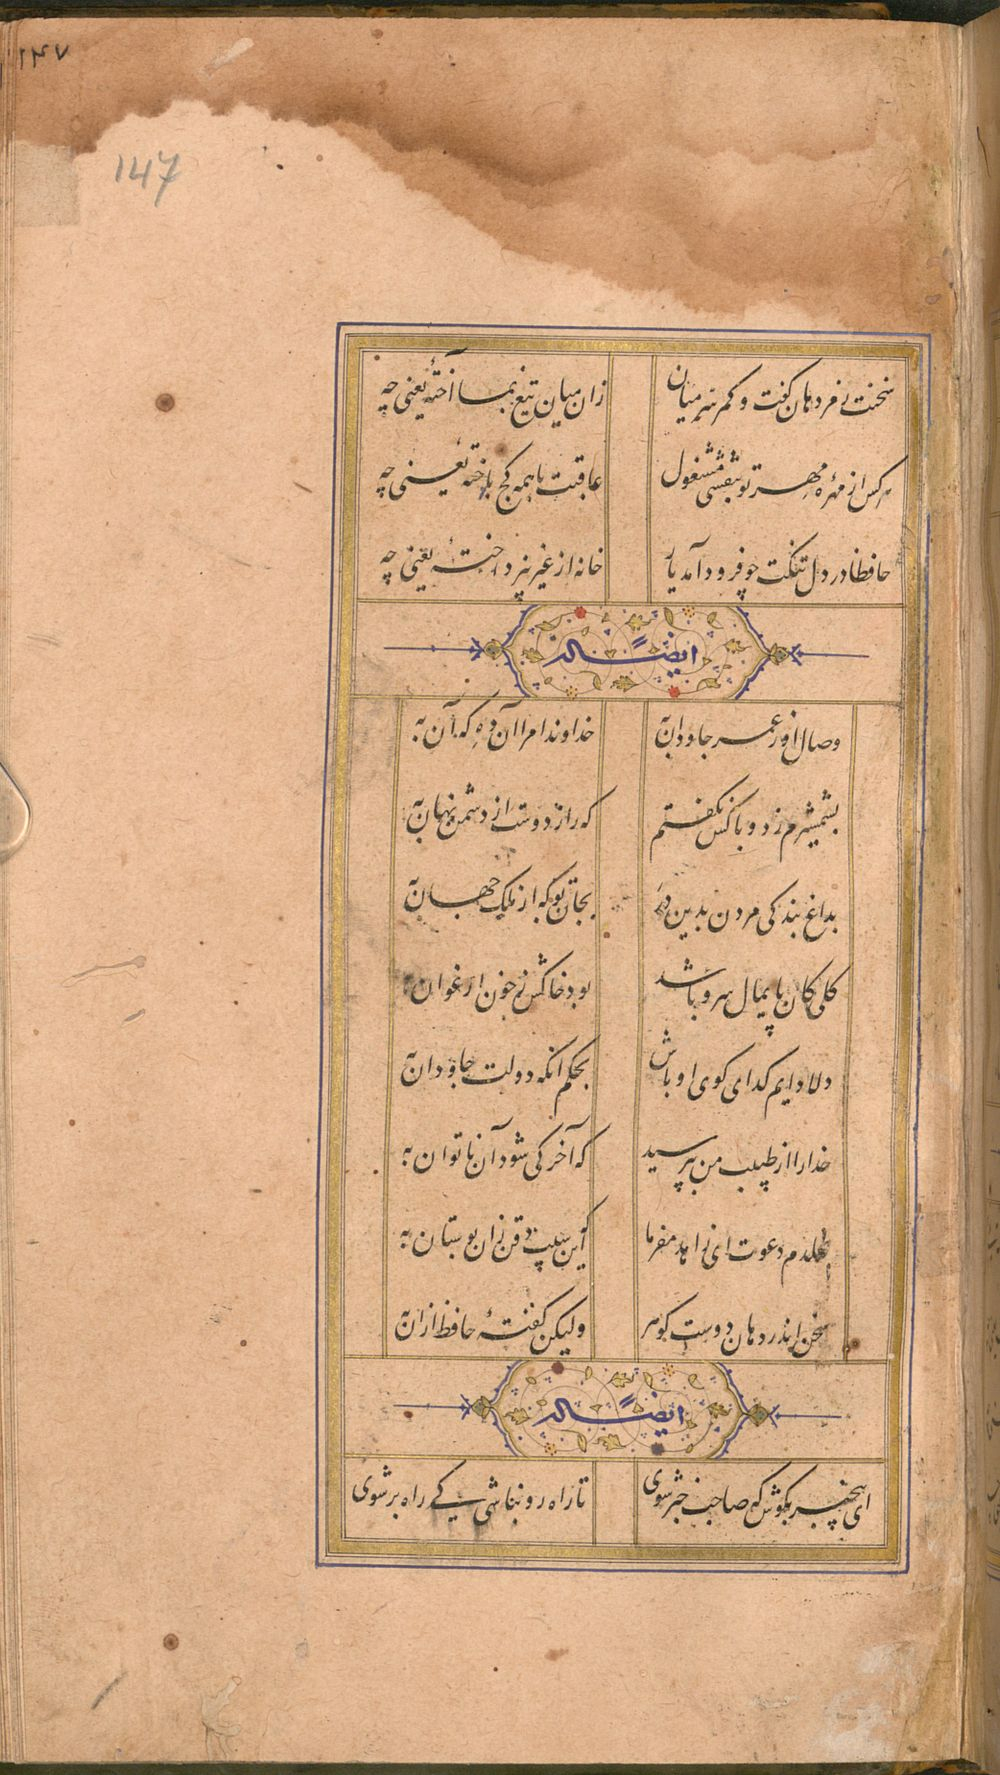 ۱۴۷
147
سخنت نی فر دهان گفت و کمر سر میان    زان میان تیغ بما آختهٔ یعنی چه
هر کس از مهرهٔ مهر تو بنقشی مشغول    عاقبت با همه کج باختهٔ یعنی چه
حافظا در دل تنگت چو فرود آمد یار    خانه از غیر نپرداختهٔ یعنی چه
ایضاً له
وصال او ز عمر جاودان به    خداوندا مرا آن ده که آن به
بشمشیرم زد و با کس نگفتم    که راز دوست از دشمن نهان به
بداغ بندگی مردن بدین در    بجان تو که از ملک جهان به
گلی کان پایمال سرو باشد    بود خاکش ز خون ارغوان به
دلا دایم گدای کوی او باش    بحکم آنکه دولت جاودان به
خدا را از طبیب من بپرسید    که آخر کی شود آن ناتوان به
بخلدم دعوت ای زاهد مفرما    که این سیب ذقن زان بوستان به
سخن اندر دهان دوست گوهر    ولیکن گفتهٔ حافظ از آن به
ایضاً له
ای بیخبر بکوش که صاحب خبر شوی    تا راه رو نباشی کی راه بر شوی